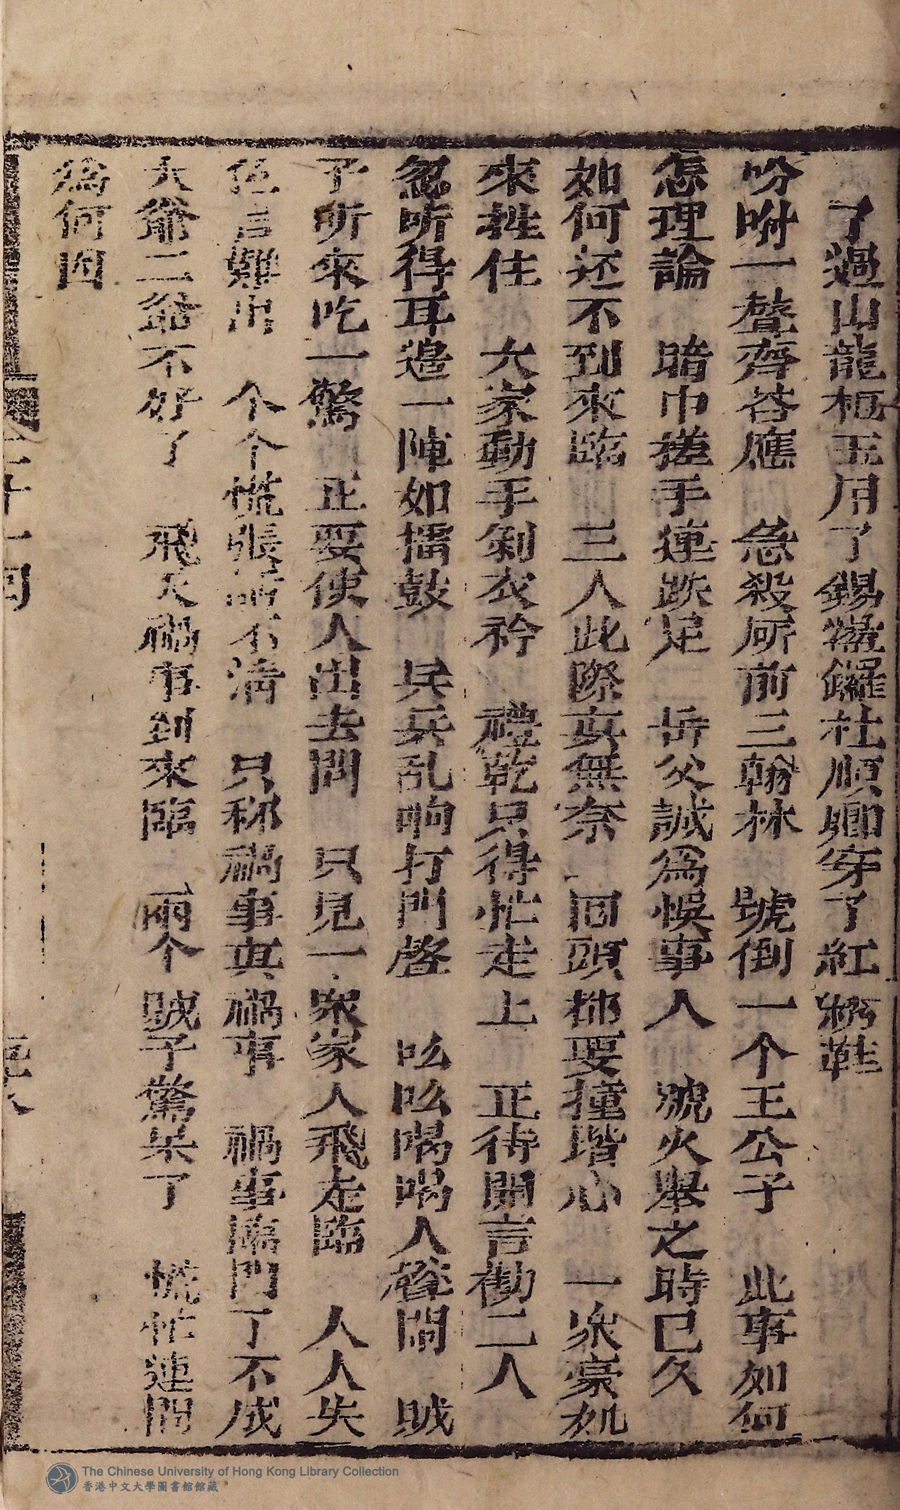 了過山龍柩玉用了錫鑼杜順卿穿了紅綉鞋
吩咐一聲齊答應 急殺所前三翰林 號倒一个王公子 此事如何
怎理論 暗巾搓手連跌足 岳父誠為悞事人 號火舉之時已久
如何还不到來臨 三人此際真無奈 回頭都要撞堦心 一衆豪奴
來拄住 大家動手剝衣衿 禮乾只得忙走上 正待開言勸二人
忽听得耳邉一陣如擂鼓 乒乓乱响打門聲 吆吆喝喝人聲鬧 賊
子听來吃一驚 正要使人出去問 只見一衆家人飛走臨 人人失
色言難出 个个慌張話不清 只称禍事真禍事 禍事臨門了不成
大爺二爺不好了 飛天禍事到來臨 兩个賊子驚呆了 慌忙連問
為何因
二十一回
The Chinese University of Hong Kong Library Collection
香港中文大學圖書館館藏